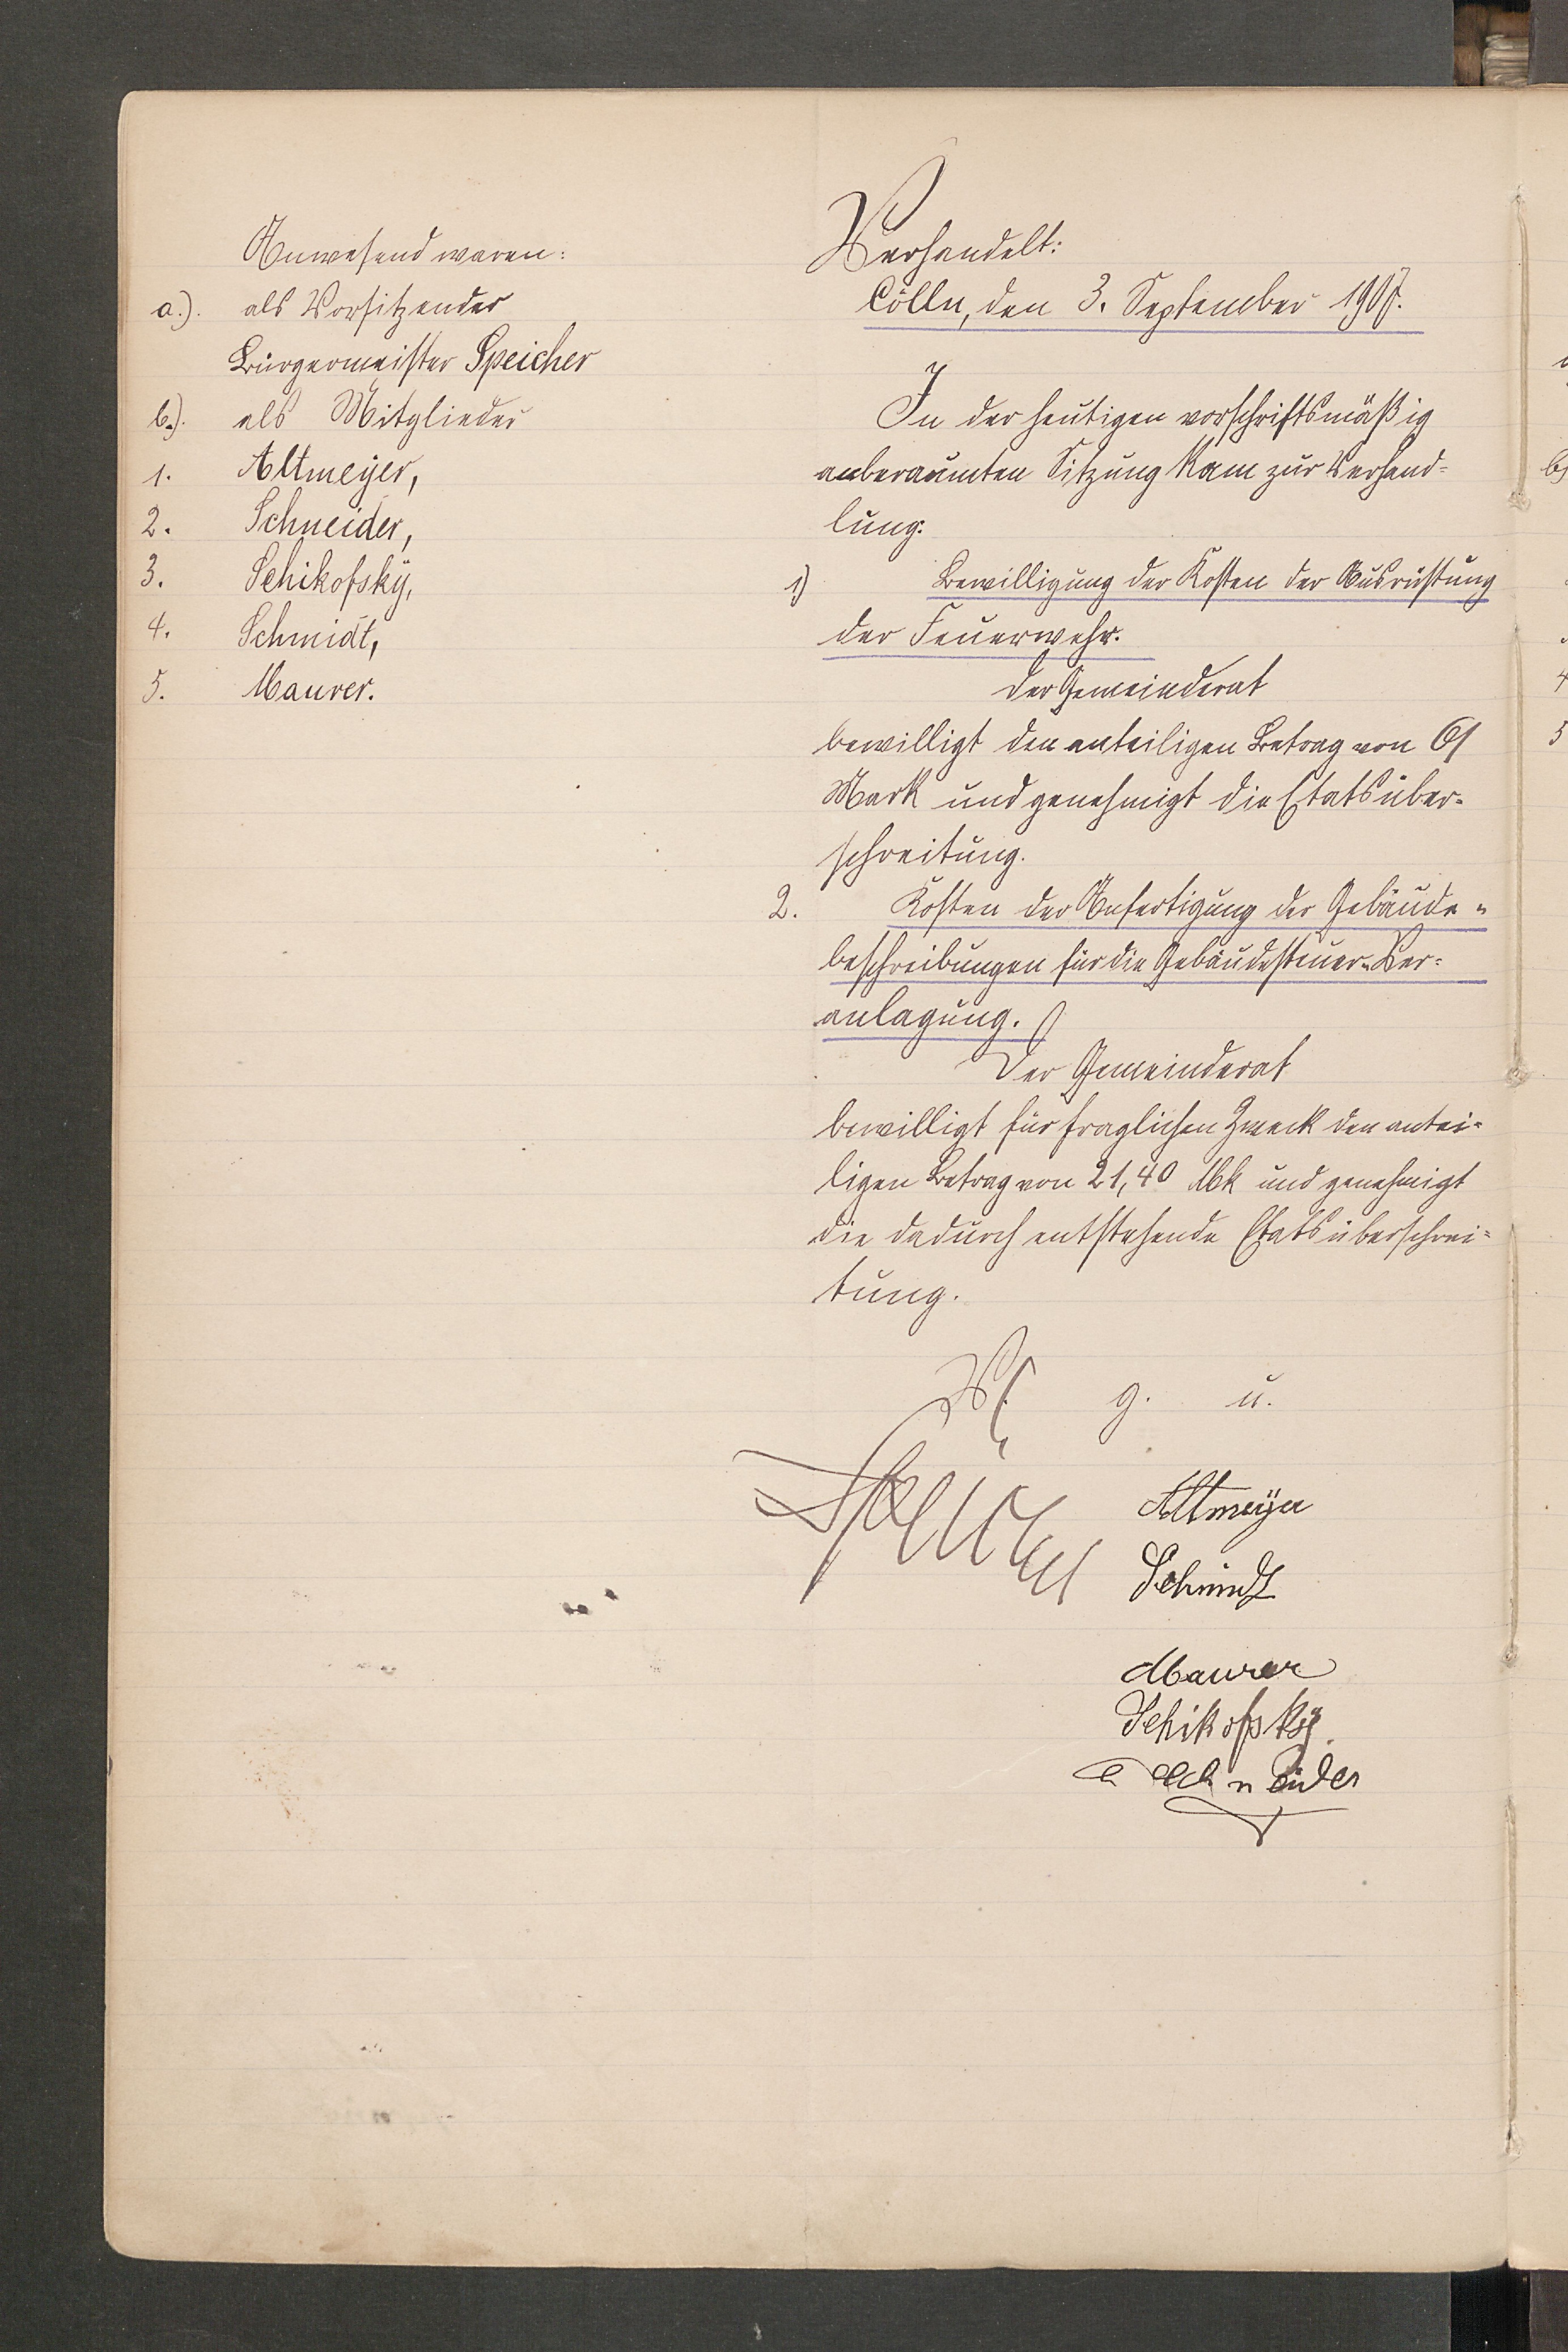 Anwesend waren:
a.). als Vorsitzender
Bürgermeister Speicher
b.). als Mitglieder
1. Altmeyer,
2. Schneider,
3. Schikofsky,
4. Schmidt,
5. Maurer.
Verhandelt:
Cölln, den 3. September 1907.
In der heutigen vorschriftsmäßig
anberaumten Sitzung kam zur Verhand-
lung:
1) Bewilligung der Kosten der Ausrüstung
der Feuerwehr.
Der Gemeinderat
bewilligt den anteiligen Betrag von 61
Mark und genehmigt die Etatsüber-
schreitung.
2. Kosten der Anfertigung der Gebäude-
beschreibungen für die Gebäudesteuer-Ver-
anlagung.
Der Gemeinderat
bewilligt für fraglichen Zweck den antei-
ligen Betrag von 21,40 Mk und genehmigt
die dadurch entstehende Etatsüberschrei-
tung.
V. g. u.
Speicher
Altmeyer
Schmidt
Maurer
Schikofsky.
Schneider